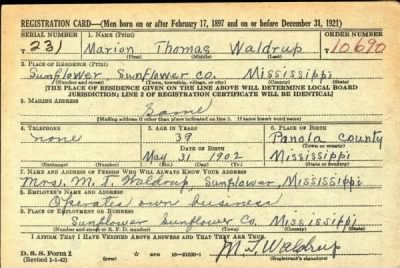 REGISTRATION CARD—(Men born on or after February 17, 1897 and on or before December 31, 1921)
SERIAL NUMBER 1. NAME (Print) ORDER NUMBER
T 231 Marion Thomas Waldrup 10690
(First) (Middle) (Last)
2. PLACE OF RESIDENCE (Print)
Sunflower Sunflower Co. Mississippi
(Number and street) (Town, township, village, or city) (County) (State)
(THE PLACE OF RESIDENCE GIVEN ON THE LINE ABOVE WILL DETERMINE LOCAL BOARD
JURISDICTION; LINE 2 OF REGISTRATION CERTIFICATE WILL BE IDENTICAL)
3. MAILING ADDRESS
Same
(Mailing address if other than place indicated on line 2. If same insert word same)
4. TELEPHONE 5. AGE IN YEARS 6. PLACE OF BIRTH
none 39 Panola County
DATE OF BIRTH (Town or county)
May 31 1902 Mississippi
(Exchange) (Number) (Mo.) (Day) (Yr.) (State or country)
7. NAME AND ADDRESS OF PERSON WHO WILL ALWAYS KNOW YOUR ADDRESS
Mrs. M. T. Waldrup, Sunflower, Mississippi
8. EMPLOYER'S NAME AND ADDRESS
Operates own business
9. PLACE OF EMPLOYMENT OR BUSINESS
Sunflower Sunflower Co. Mississippi
(Number and street or R. F. D. number) (Town) (County) (State)
I AFFIRM THAT I HAVE VERIFIED ABOVE ANSWERS AND THAT THEY ARE TRUE.
D. S. S. Form 1
(Revised 1-1-42) (over) GPO M. T. Waldrup
(Registrant's signature)